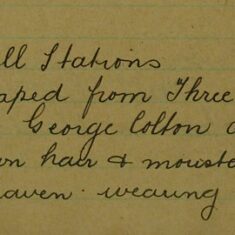 ll Stations
aped from Three
George Colton a
wn hair & mousta
haven wearing